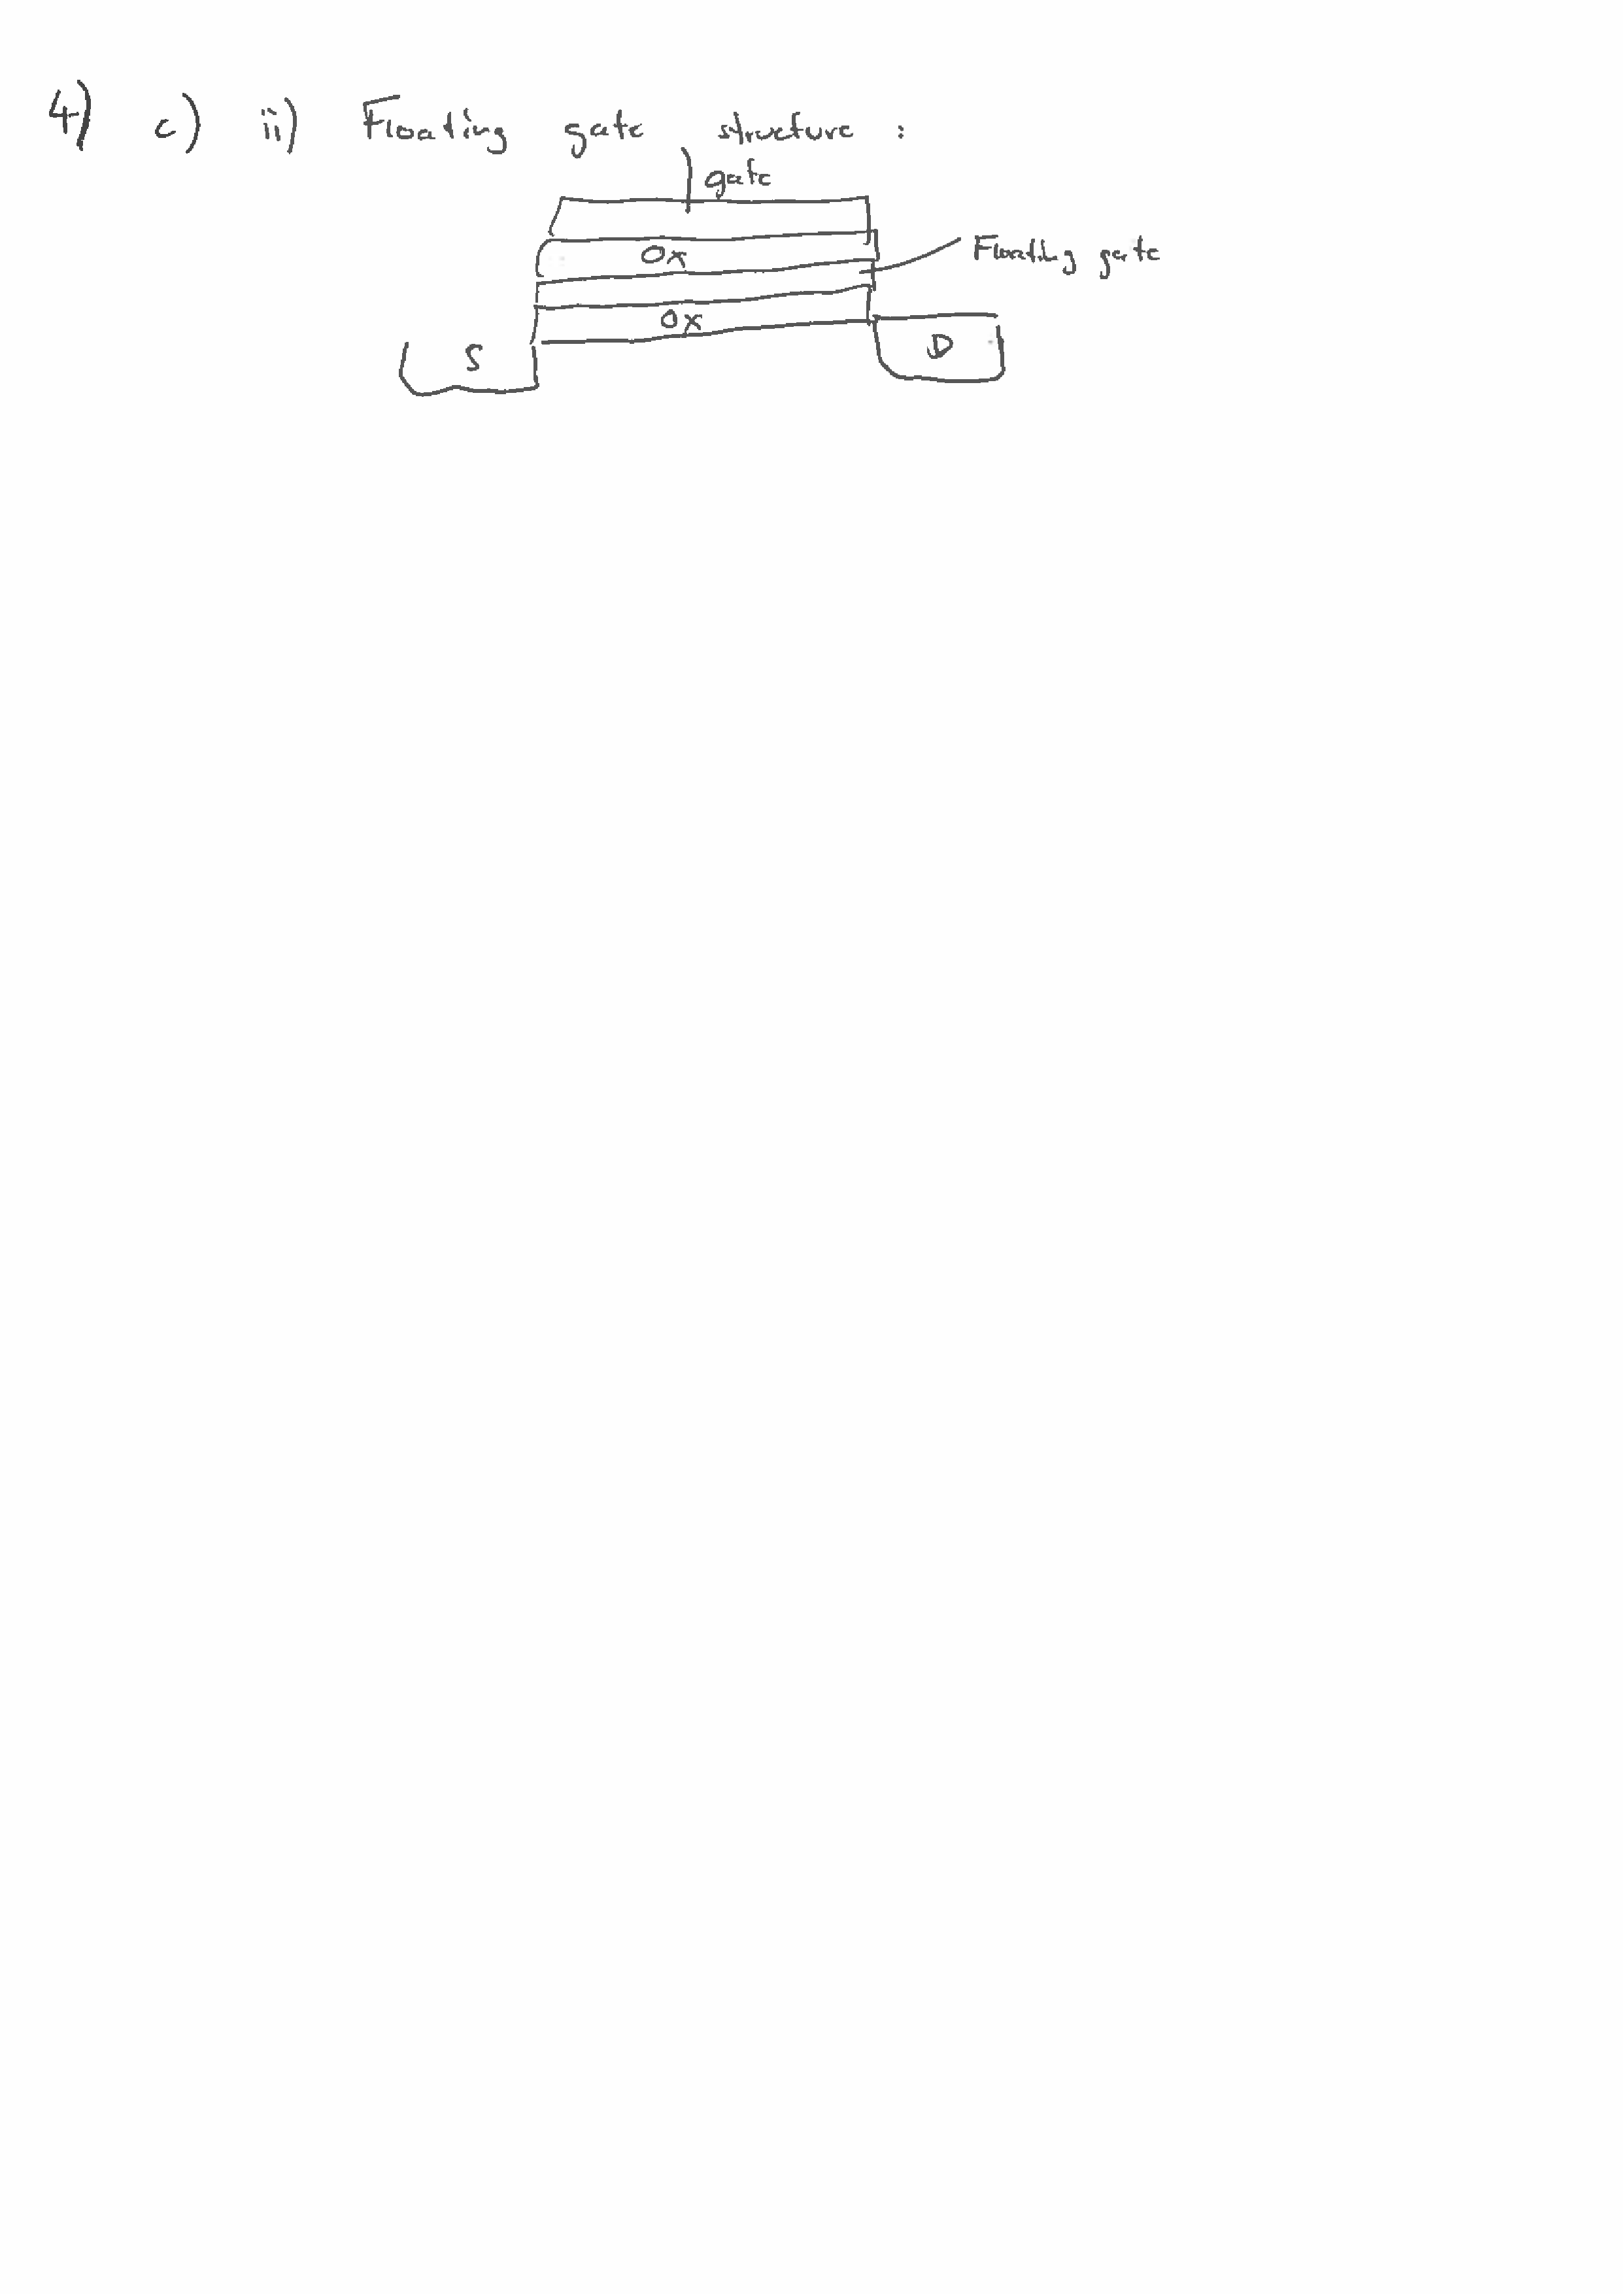 4) c) ii) Floating gate structure :
gate
Ox
Floating gate
Ox
S
D